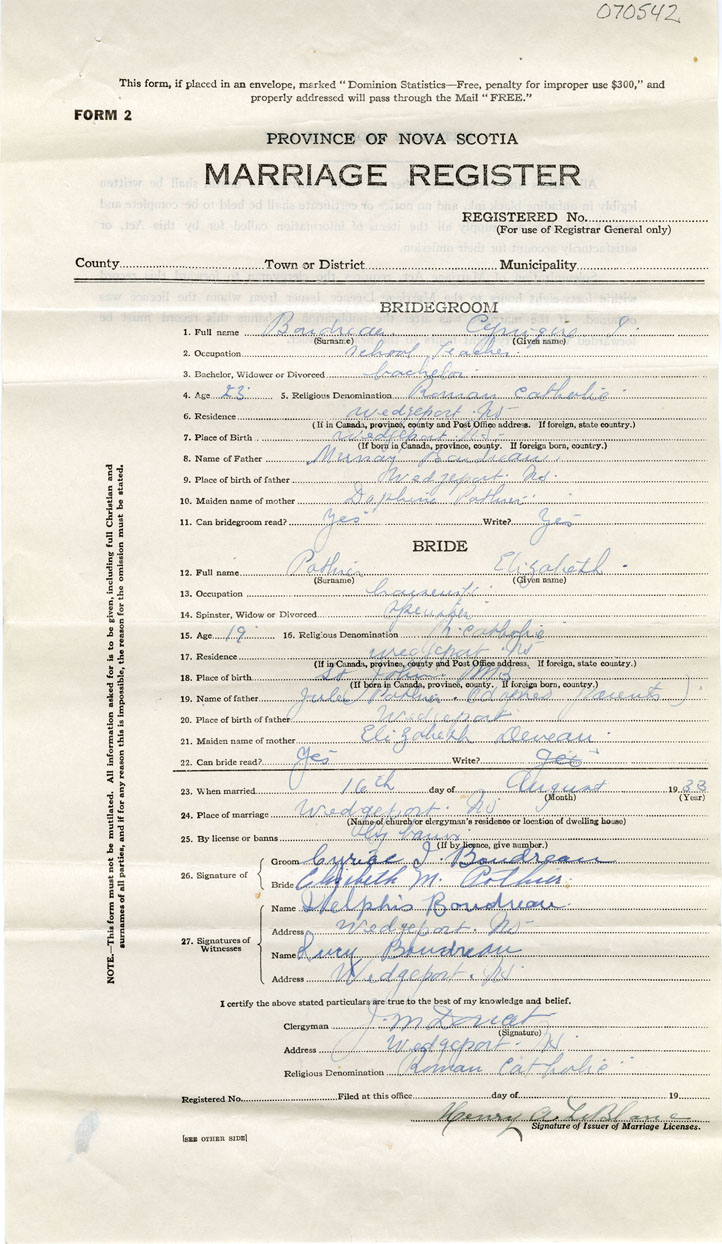 070542
This form, if placed in an envelope, marked "Dominion Statistics—Free, penalty for improper use $300," and
properly addressed will pass through the Mail "FREE."
FORM 2
PROVINCE OF NOVA SCOTIA
MARRIAGE REGISTER
REGISTERED No.
(For use of Registrar General only)
County Town or District Municipality
BRIDEGROOM
1. Full name Boudreau
(Surname) (Given name)
2. Occupation School Teacher
3. Bachelor, Widower or Divorced bachelor
4. Age 23 5. Religious Denomination Roman Catholic
6. Residence Wedgeport NS
(If in Canada, province, county and Post Office address. If foreign, state country.)
7. Place of Birth Wedgeport NS
(If born in Canada, province, county. If foreign born, country.)
8. Name of Father Boudreau
9. Place of birth of father Wedgeport NS
10. Maiden name of mother Pothier
11. Can bridegroom read? Yes Write? Yes
BRIDE
12. Full name Pothier Elizabeth
(Surname) (Given name)
13. Occupation
14. Spinster, Widow or Divorced Spinster
15. Age 19 16. Religious Denomination R. Catholic
17. Residence Wedgeport NS
(If in Canada, province, county and Post Office address. If foreign, state country.)
18. Place of birth St John
(If born in Canada, province, county. If foreign born, country.)
19. Name of father Jules Pothier (adopted parents)
20. Place of birth of father Wedgeport
21. Maiden name of mother Elizabeth Deveau
22. Can bride read? Yes Write? Yes
23. When married 16th day of August 1933
(Month) (Year)
24. Place of marriage Wedgeport NS
(Name of church/or clergyman's residence or location of dwelling house)
25. By license or banns By banns
(If by licence, give number.)
Groom Cyriac J. Boudreau
26. Signature of
Bride Elizabeth M. Pothier
Name Delphis Boudreau
Address Wedgeport, NS
27. Signatures of
Witnesses
Name Lucy Boudreau
Address Wedgeport, NS
I certify the above stated particulars are true to the best of my knowledge and belief.
Clergyman J. M. Doucet
(Signature)
Address Wedgeport N.S.
Religious Denomination Roman Catholic
Registered No. Filed at this office day of 19
Henry A. LeBlanc
Signature of Issuer of Marriage Licenses.
[SEE OTHER SIDE]
NOTE.—This form must not be mutilated. All information asked for is to be given, including full Christian and
surnames of all parties, and if for any reason this is impossible, the reason for the omission must be stated.